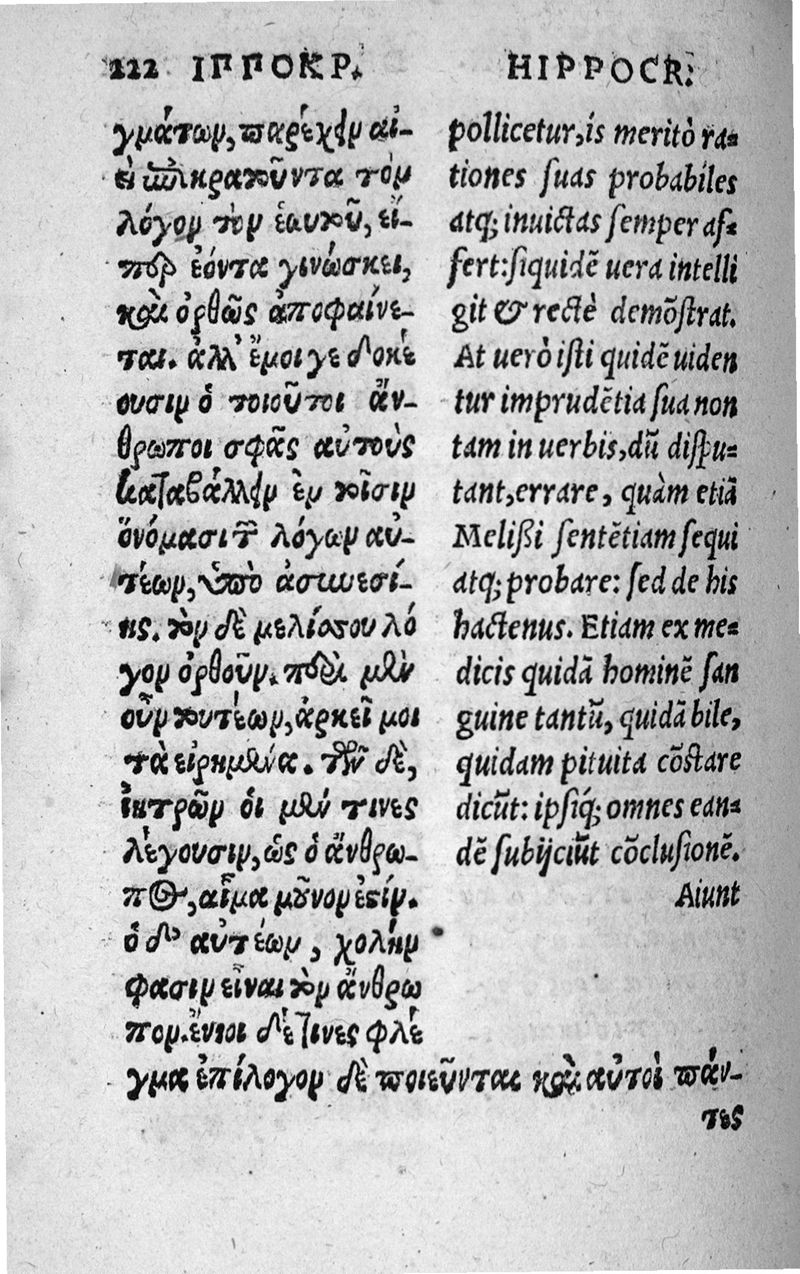 222 ΙΠΠΟΚΡ.
γμάτων, παρέχειν αἰ-
εὶ ἐπικρατοῦντα τὸν
λόγον τὸν ἑαυτοῦ, εἴ-
περ ἐόντα γινώσκει,
καὶ ὀρθῶς ἀποφαίνε-
ται. ἀλλ' ἔμοιγε δοκέ
ουσιν ὁ τοιοῦτοι ἄν-
θρωποι σφᾶς αὐτοὺς
καταβάλλειν ἐν τοῖσιν
ὀνόμασι τῶν λόγων αὐ-
τέων, ὑπὸ ἀσυνεσί-
ης. τὸν δὲ μελίσσου λό
γον ὀρθοῦν. περὶ μὲν
οὖν τουτέων, ἀρκεῖ μοι
τὰ εἰρημένα. τῶν δὲ,
ἰητρῶν οἱ μέν τινες
λέγουσιν, ὡς ὁ ἄνθρω-
πος, αἷμα μοῦνον ἐστίν.
ὁ δ' αὐτέων, χολὴν
φασιν εἶναι τὸν ἄνθρω
πον. ἔνιοι δέ τινες φλέ
γμα ἐπίλογον δὲ ποιεῦνται καὶ αὐτοὶ πάν-
τες
HIPPOCR.
pollicetur, is meritò ra-
tiones suas probabiles
atq; inuictas semper af-
fert: siquidē uera intelli
git & rectè demōstrat.
At uerò isti quidē uiden
tur imprudētia sua non
tam in uerbis, dū dispu-
tant, errare, quàm etiā
Melißi sentētiam sequi
atq; probare: sed de his
hactenus. Etiam ex me-
dicis quidā hominē san
guine tantū, quidā bile,
quidam pituita cōstare
dicūt: ipsiq́; omnes ean-
dē subijciūt cōclusionē.
Aiunt